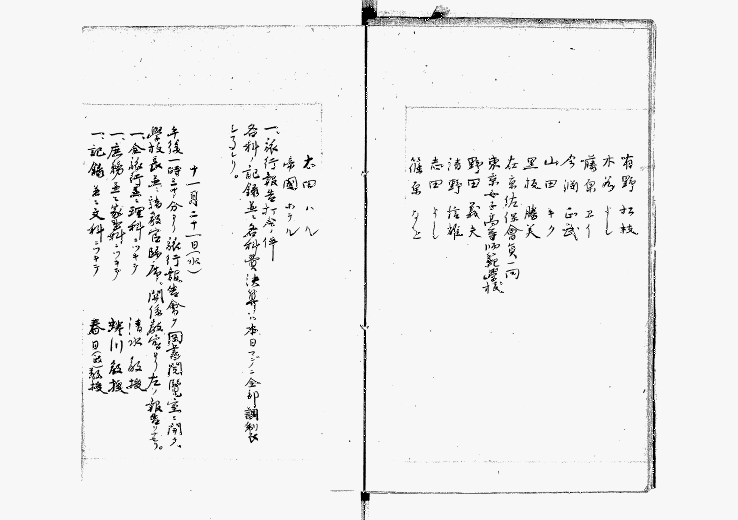 有野 松枝
木谷 よし
藤泉 ヱイ
今淵 正武
山田 キク
黒板 勝美
在京佐保會員一同
東京女子高等師範學校
野田 義夫
清野 信雄
志田 よし
篠原
志田 ハル
帝國ホテル
一、旅行報告打合ノ件
各科ノ記録並ニ各科費決算ハ本日マデニ全部調製セ
シメタリ。
十一月二十一日(水)
午後一時三十分ヨリ旅行報告會ヲ図書閲覧室ニ開ク、
學校長並ニ諸教官臨席、関係教官ヨリ左ノ報告アリ。
一、全旅行並ニ理科ニツキテ 清水教授
一、庶務並ニ家事科ニツキテ 蜷川教授
一、記録並ニ文科ニツキテ 春日教授